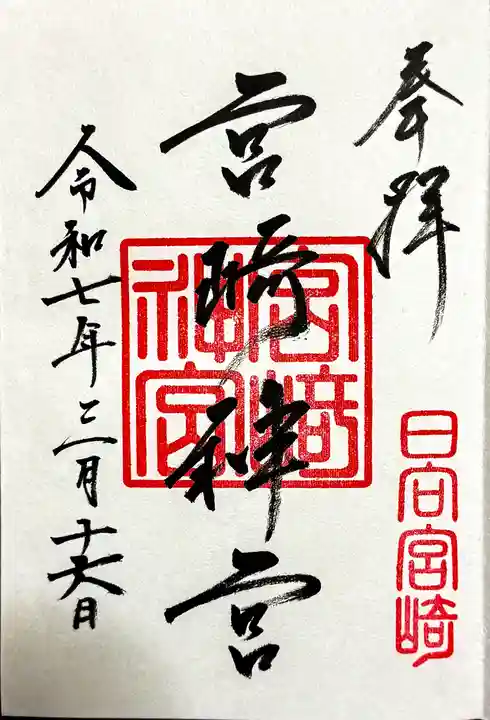 奉拝
日向宮崎
宮崎神宮
宮崎
神宮
令和七年三月十六日